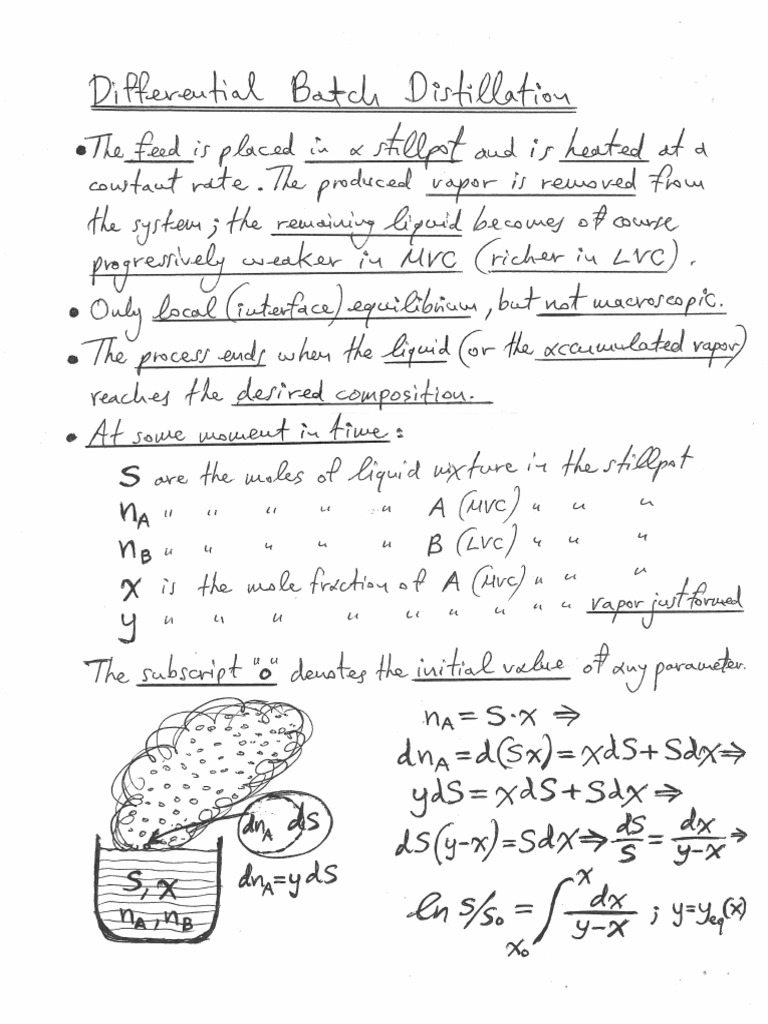 Differential Batch Distillation
• The feed is placed in a stillpot and is heated at a
constant rate. The produced vapor is removed from
the system; the remaining liquid becomes of course
progressively weaker in MVC (richer in LVC).
• Only local (interface) equilibrium, but not macroscopic.
• The process ends when the liquid (or the accumulated vapor)
reaches the desired composition.
• At some moment in time:
S are the moles of liquid mixture in the stillpot
n_A " " " " " A (MVC) " " "
n_B " " " " " B (LVC) " " "
x is the mole fraction of A (MVC) " " "
y " " " " " " " " " vapor just formed
The subscript "o" denotes the initial value of any parameter.
n_A = S·x ⇒
dn_A = d(Sx) = xdS + Sdx ⇒
ydS = xdS + Sdx ⇒
dS(y-x) = Sdx ⇒ dS/S = dx/(y-x) ⇒
ln S/S₀ = ∫_{x₀}^{x} dx/(y-x) ; y = y_eq(x)
dn_A dS
dn_A = ydS
S, x
n_A, n_B